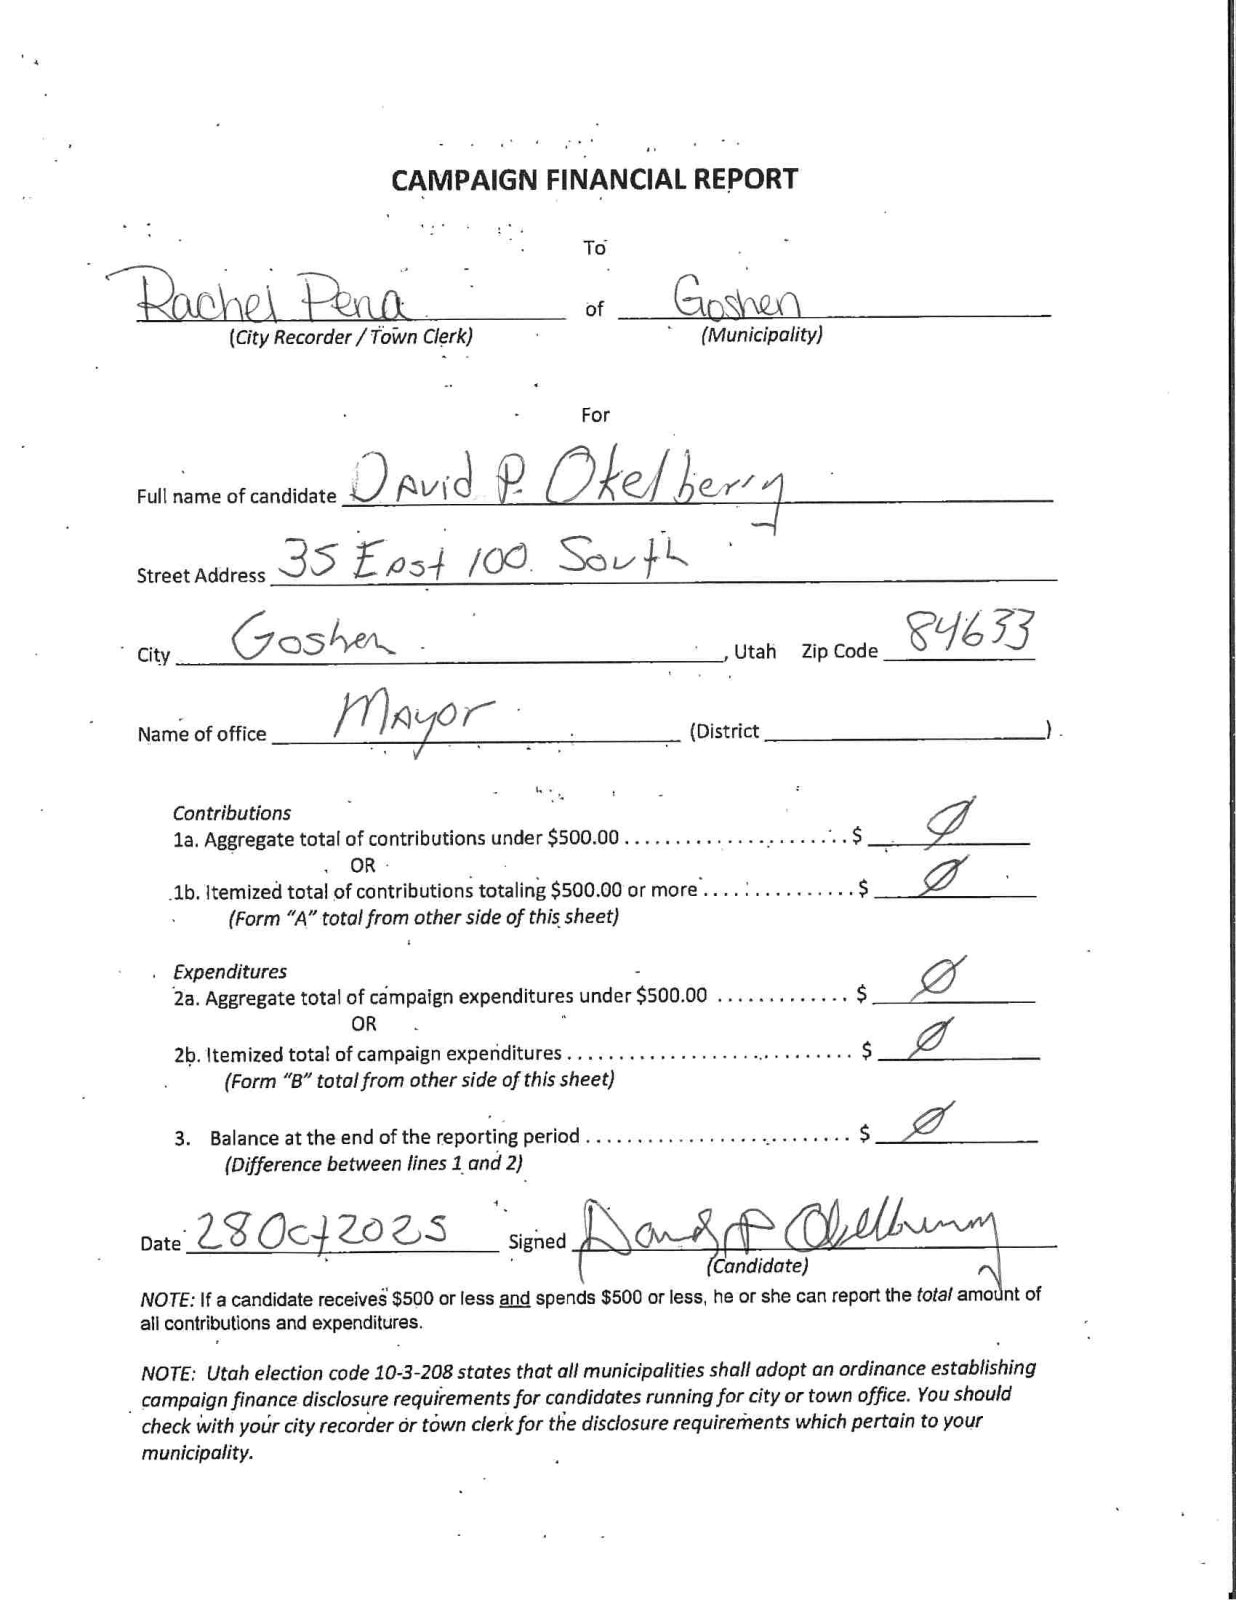 CAMPAIGN FINANCIAL REPORT
To
Rachel Pena of Goshen
(City Recorder / Town Clerk) (Municipality)
For
Full name of candidate David P. Okelberry
Street Address 35 East 100 South
City Goshen, Utah Zip Code 84633
Name of office Mayor (District )
Contributions
1a. Aggregate total of contributions under $500.00 ..................... $ Ø
OR
1b. Itemized total of contributions totaling $500.00 or more ............... $ Ø
(Form "A" total from other side of this sheet)
Expenditures
2a. Aggregate total of campaign expenditures under $500.00 ............. $ Ø
OR
2b. Itemized total of campaign expenditures ........................... $ Ø
(Form "B" total from other side of this sheet)
3. Balance at the end of the reporting period ......................... $ Ø
(Difference between lines 1 and 2)
Date 28 Oct 2025 Signed David P Okelberry
(Candidate)
NOTE: If a candidate receives $500 or less and spends $500 or less, he or she can report the total amount of
all contributions and expenditures.
NOTE: Utah election code 10-3-208 states that all municipalities shall adopt an ordinance establishing
campaign finance disclosure requirements for candidates running for city or town office. You should
check with your city recorder or town clerk for the disclosure requirements which pertain to your
municipality.